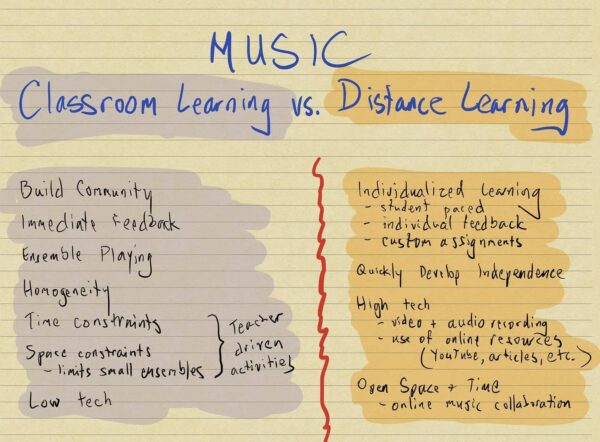 MUSIC
Classroom Learning vs. Distance Learning
Build Community
Immediate Feedback
Ensemble Playing
Homogeneity
Time constraints
Space constraints
- limits small ensembles
Teacher
driven
activities
Low tech
Individualized Learning
- student paced
- individual feedback
- custom assignments
Quickly Develop Independence
High tech
- video + audio recording
- use of online resources
(YouTube, articles, etc.)
Open Space + Time
- online music collaboration